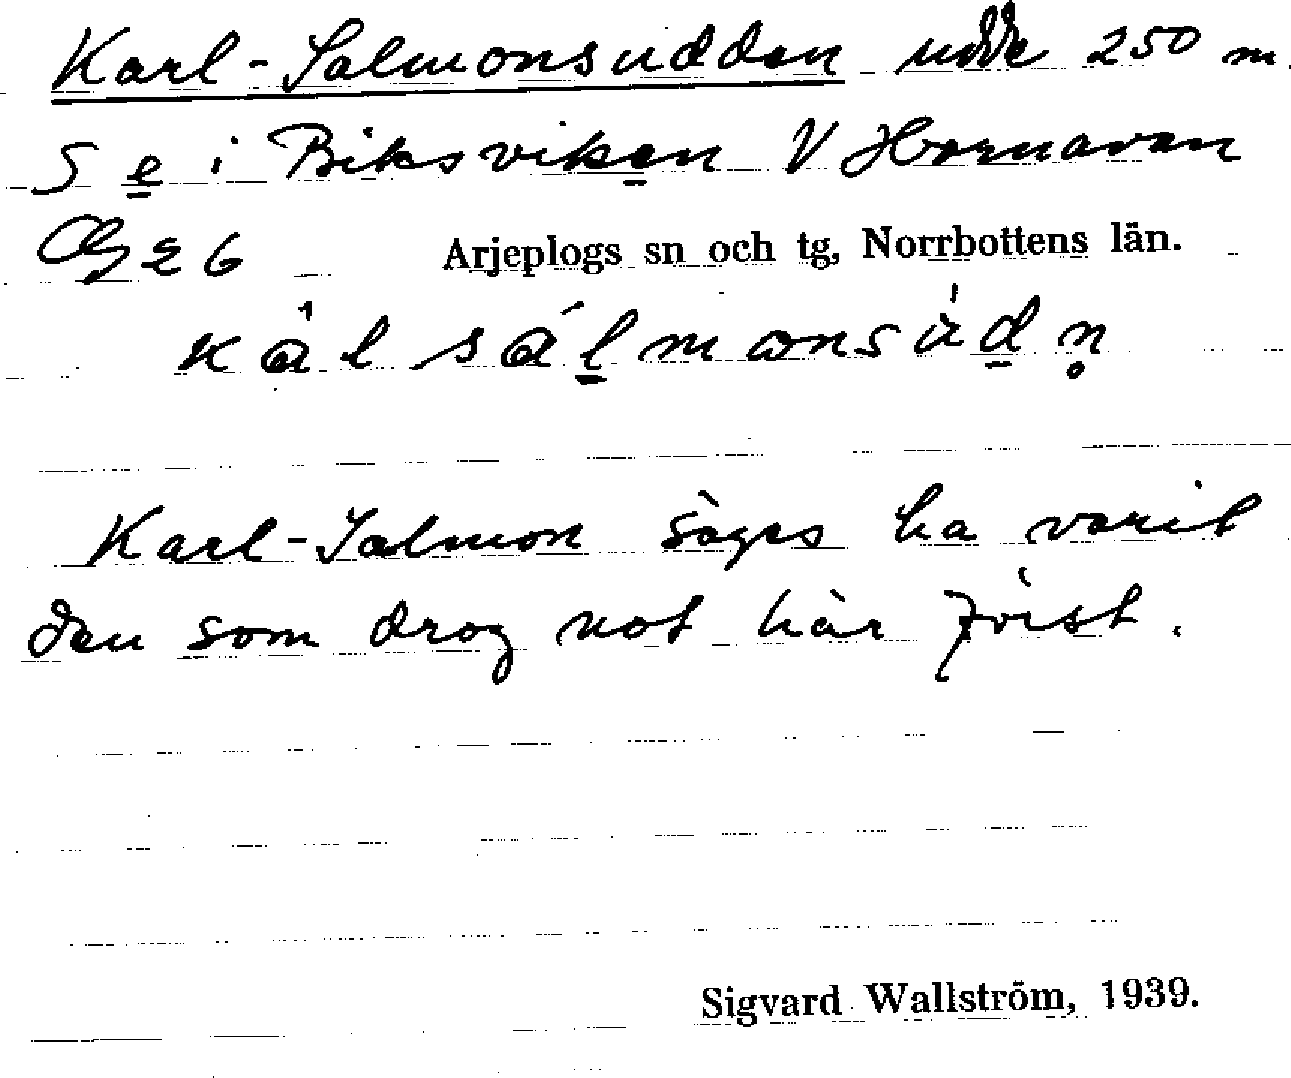 Karl-Salmonsudden udde 250 m
S e i Biksviken V Hornavan
Arjeplogs sn och tg, Norrbottens län.
kàl sálmonsùdn̥
Karl-Salmon säges ha varit
den som drog not här först.
Sigvard Wallström, 1939.